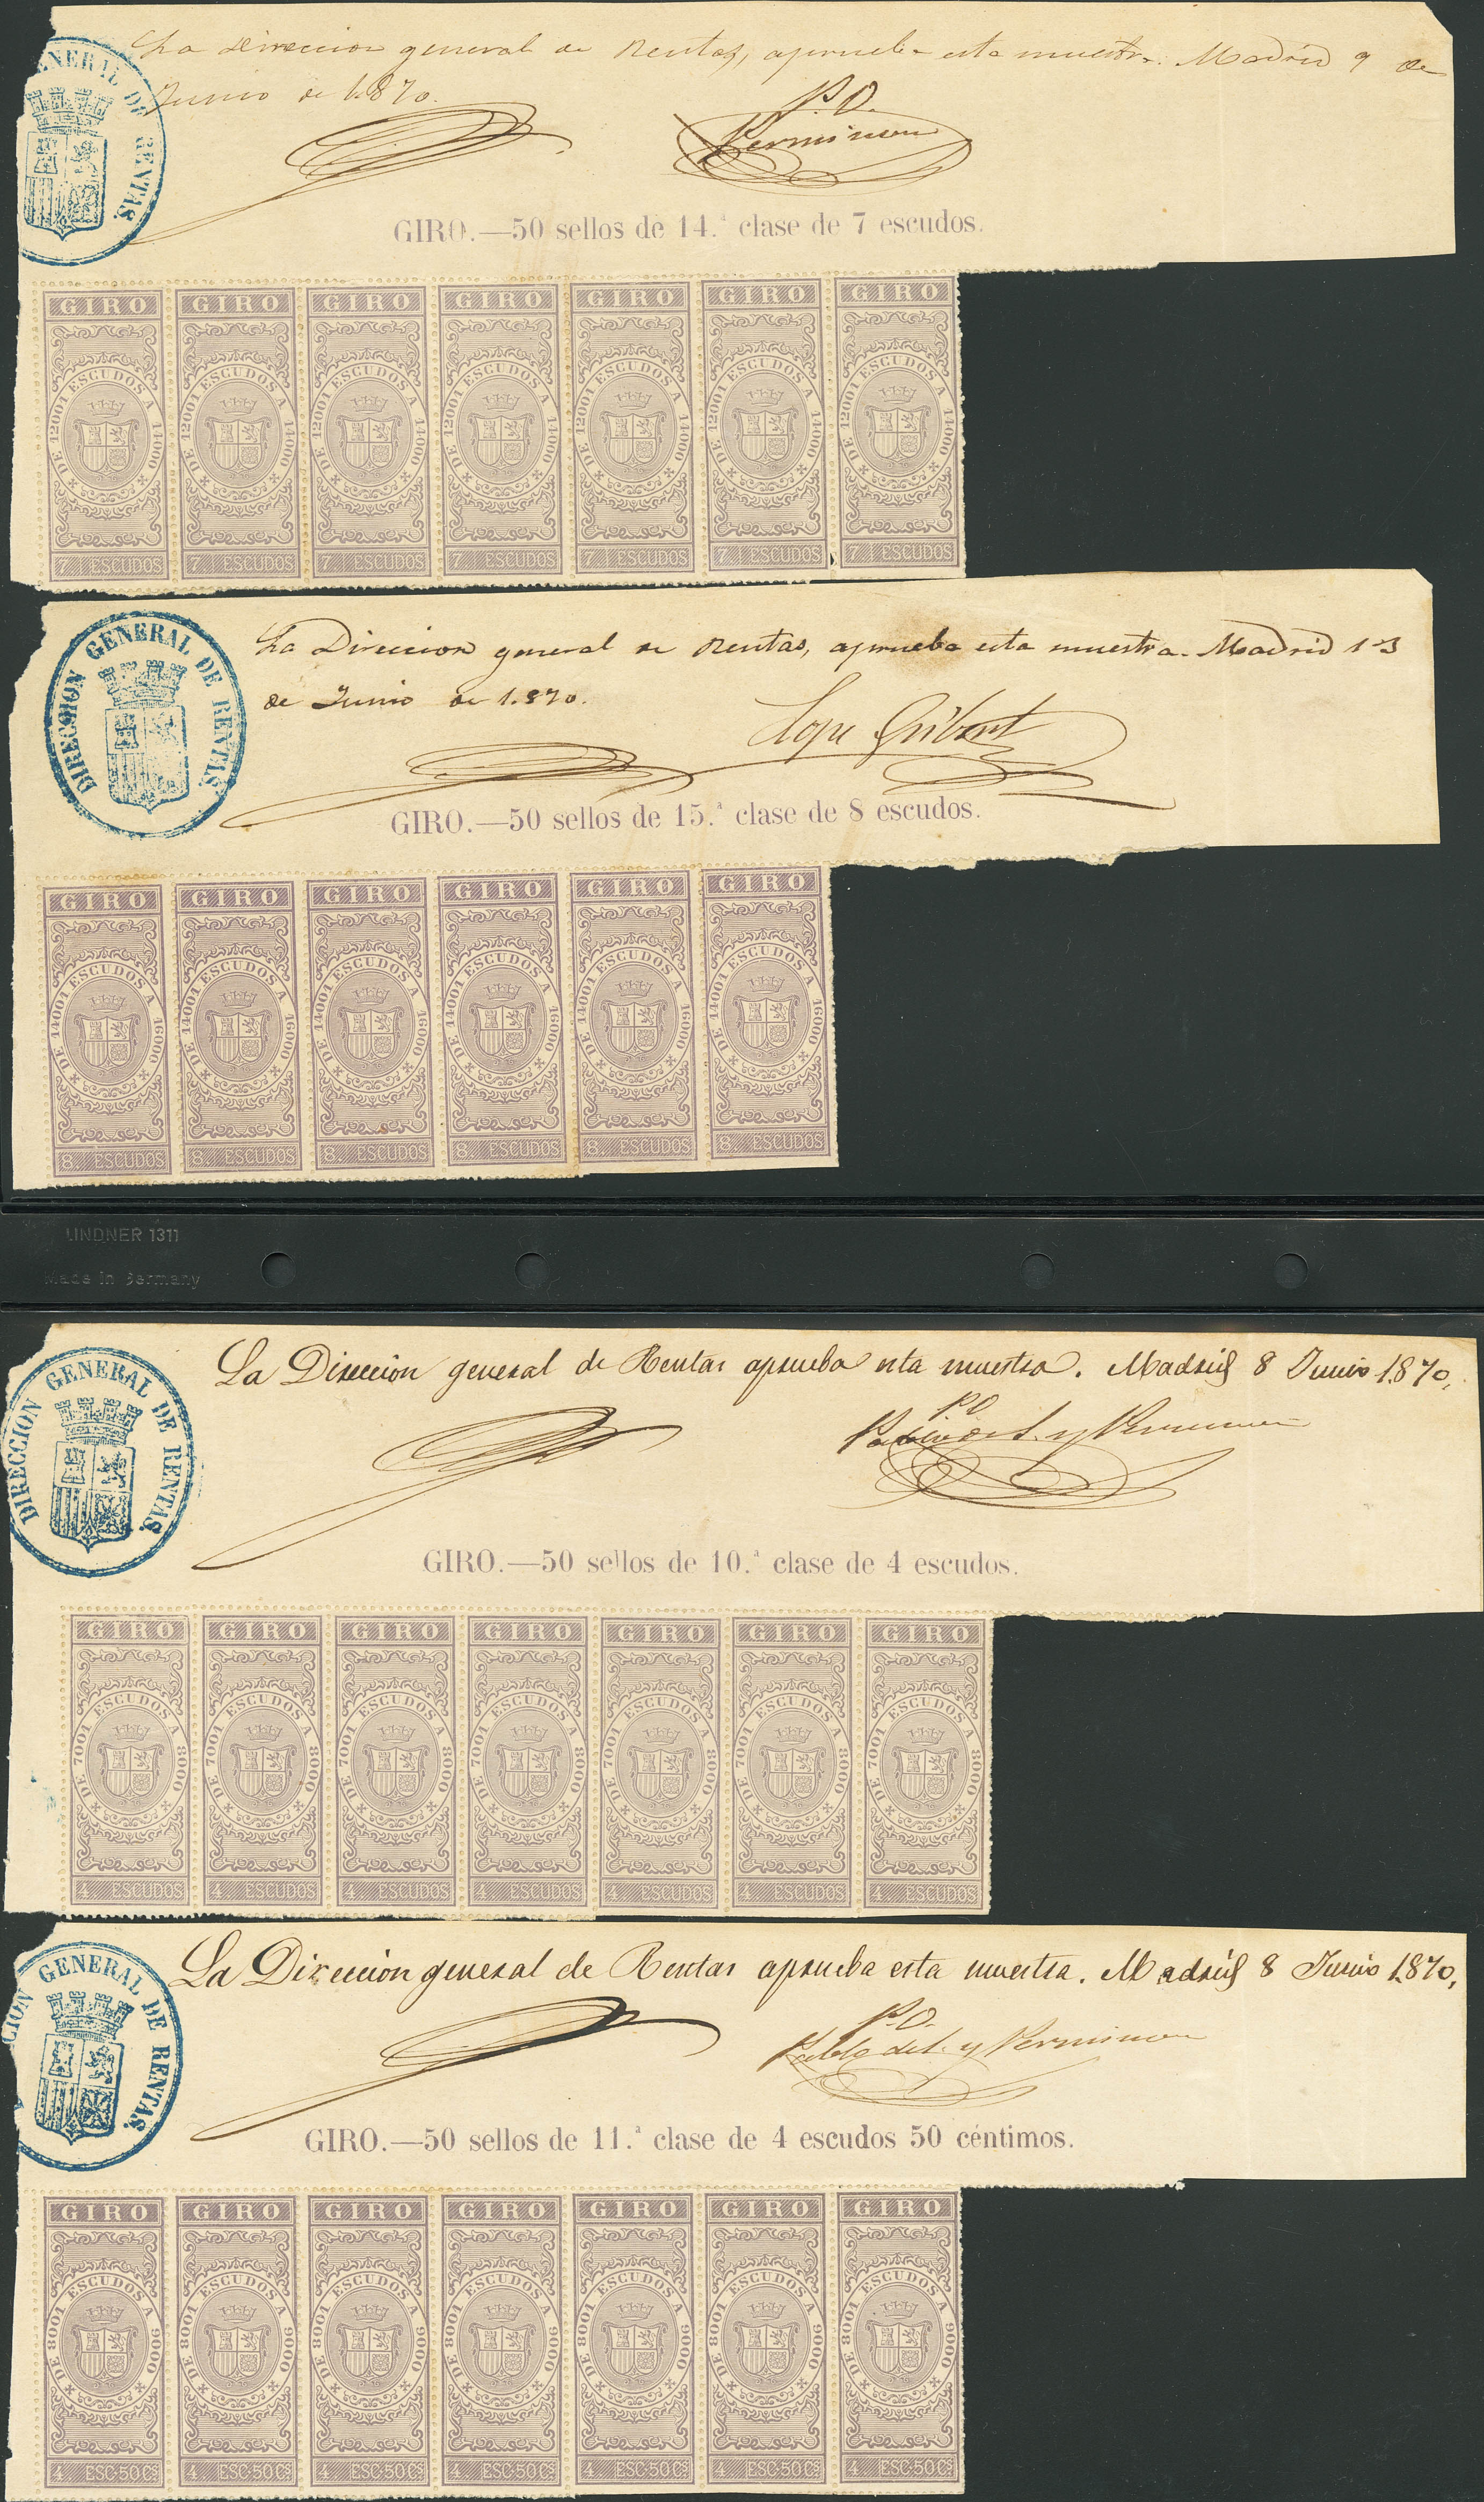 La Direccion general de Rentas, aprueba esta muestra. Madrid 9 de
Junio de 1.870.
NERAL DE RENTAS.
P.O.
GIRO.—50 sellos de 14.ª clase de 7 escudos.
GIRO GIRO GIRO GIRO GIRO GIRO GIRO
DE 12001 ESCUDOS A 14000 DE 12001 ESCUDOS A 14000 DE 12001 ESCUDOS A 14000 DE 12001 ESCUDOS A 14000 DE 12001 ESCUDOS A 14000 DE 12001 ESCUDOS A 14000 DE 12001 ESCUDOS A 14000
7 ESCUDOS 7 ESCUDOS 7 ESCUDOS 7 ESCUDOS 7 ESCUDOS 7 ESCUDOS 7 ESCUDOS
DIRECCION GENERAL DE RENTAS.
La Direccion general de Rentas, aprueba esta muestra. Madrid 13
de Junio de 1.870.
Lope Gisbert
GIRO.—50 sellos de 15.ª clase de 8 escudos.
GIRO GIRO GIRO GIRO GIRO GIRO
DE 14001 ESCUDOS A 16000 DE 14001 ESCUDOS A 16000 DE 14001 ESCUDOS A 16000 DE 14001 ESCUDOS A 16000 DE 14001 ESCUDOS A 16000 DE 14001 ESCUDOS A 16000
8 ESCUDOS 8 ESCUDOS 8 ESCUDOS 8 ESCUDOS 8 ESCUDOS 8 ESCUDOS
LINDNER 1311
Made in Germany
DIRECCION GENERAL DE RENTAS.
La Direccion general de Rentas aprueba esta muestra. Madrid 8 Junio 1870,
P.O.
GIRO.—50 sellos de 10.ª clase de 4 escudos.
GIRO GIRO GIRO GIRO GIRO GIRO GIRO
DE 7001 ESCUDOS A 8000 DE 7001 ESCUDOS A 8000 DE 7001 ESCUDOS A 8000 DE 7001 ESCUDOS A 8000 DE 7001 ESCUDOS A 8000 DE 7001 ESCUDOS A 8000 DE 7001 ESCUDOS A 8000
4 ESCUDOS 4 ESCUDOS 4 ESCUDOS 4 ESCUDOS 4 ESCUDOS 4 ESCUDOS 4 ESCUDOS
CION GENERAL DE RENTAS.
La Direccion general de Rentas aprueba esta muestra. Madrid 8 Junio 1870,
P.O.
GIRO.—50 sellos de 11.ª clase de 4 escudos 50 céntimos.
GIRO GIRO GIRO GIRO GIRO GIRO GIRO
DE 8001 ESCUDOS A 9000 DE 8001 ESCUDOS A 9000 DE 8001 ESCUDOS A 9000 DE 8001 ESCUDOS A 9000 DE 8001 ESCUDOS A 9000 DE 8001 ESCUDOS A 9000 DE 8001 ESCUDOS A 9000
4 ESC·50 Cs 4 ESC·50 Cs 4 ESC·50 Cs 4 ESC·50 Cs 4 ESC·50 Cs 4 ESC·50 Cs 4 ESC·50 Cs